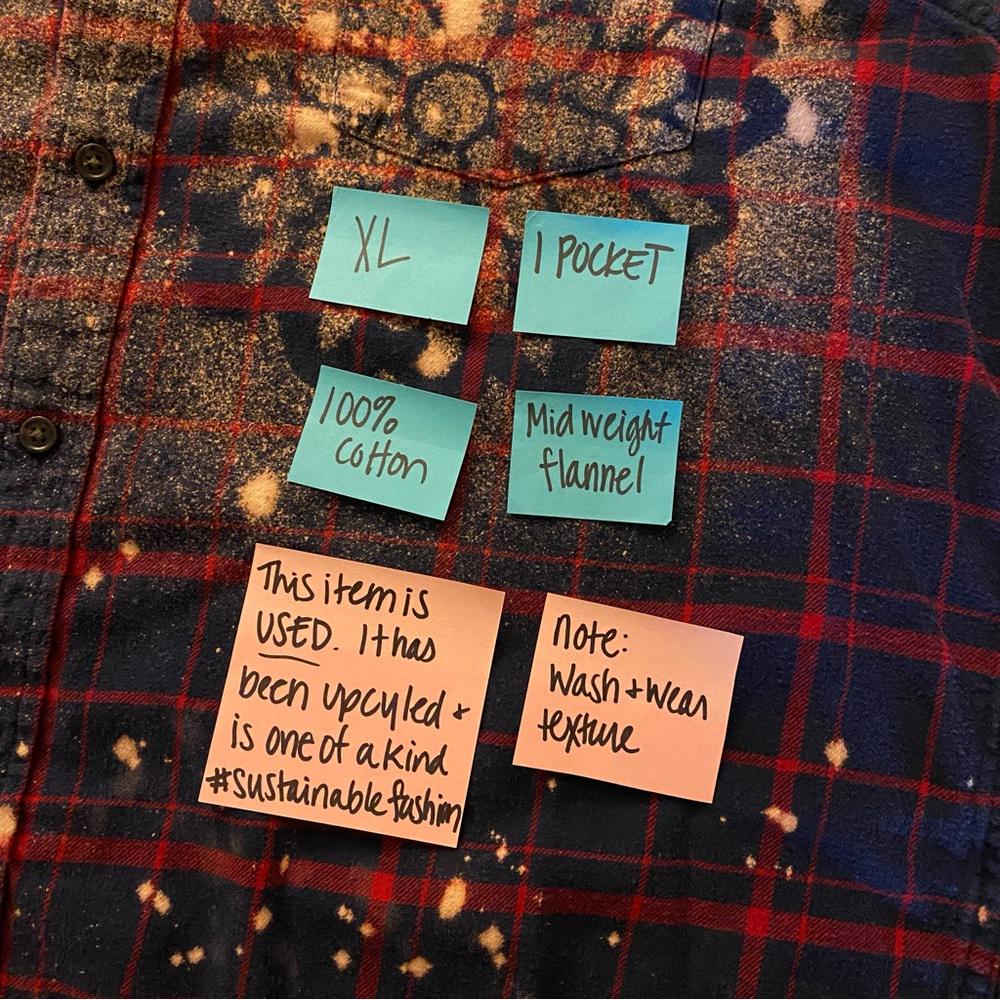 XL
1 POCKET
100%
cotton
Midweight
flannel
This item is
USED. It has
been upcyled +
is one of a kind
#sustainable fashion
note:
Wash + wear
texture